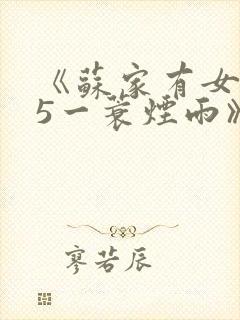 《蘇家有女
5一蓑煙雨》
寥若辰